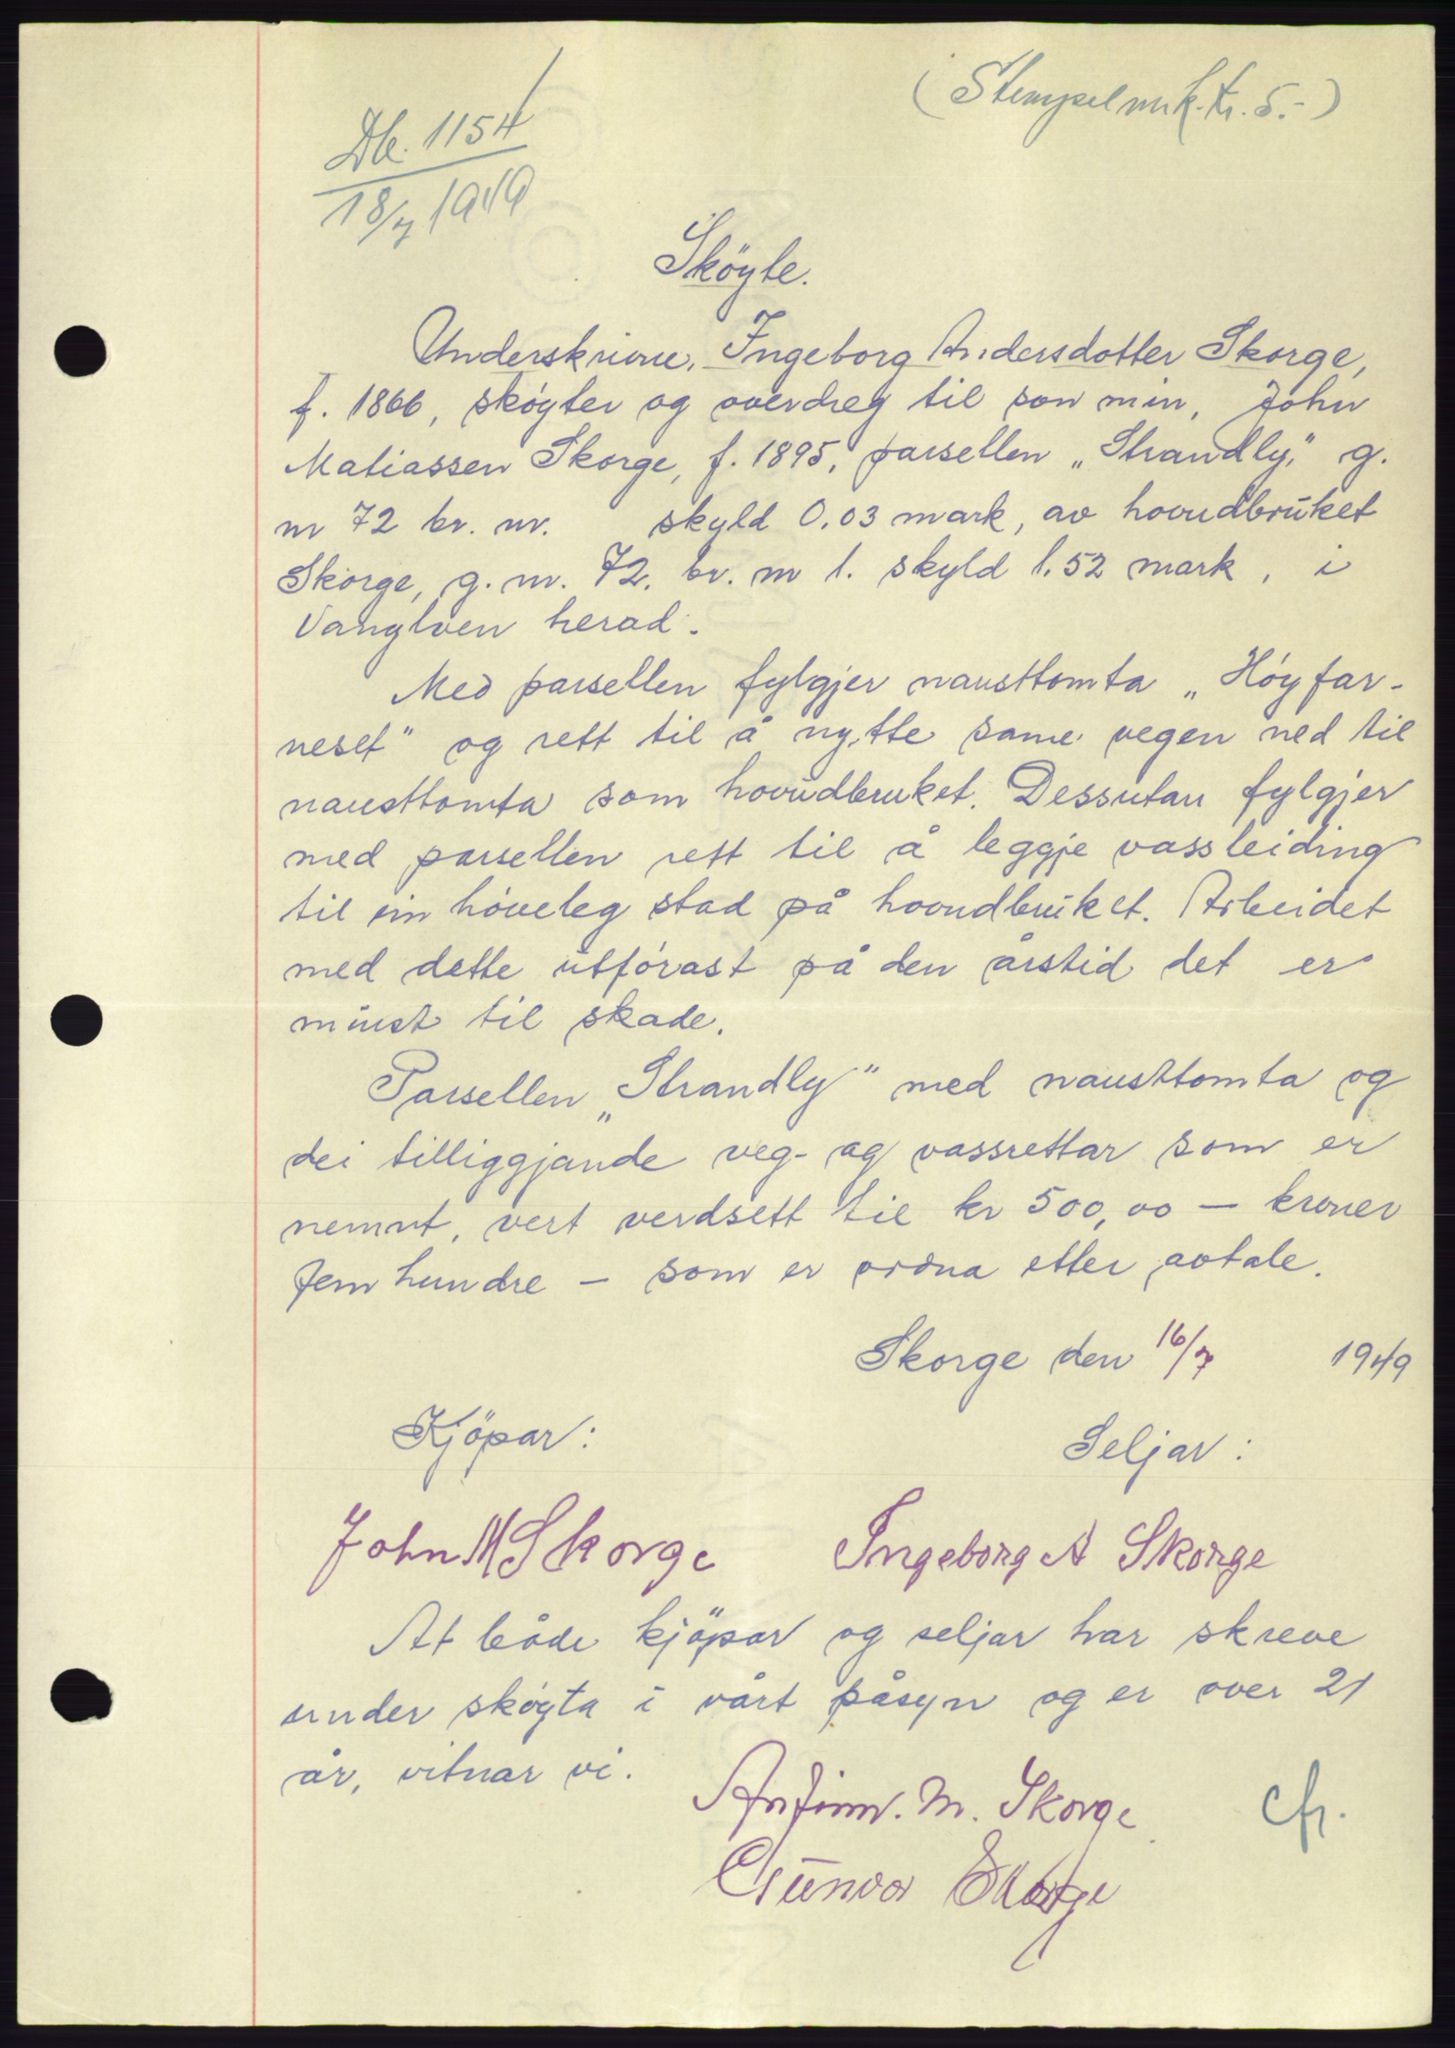 (Stempelmrk. kr. 5.-)
Db. 1154
18/7 1949
Sköyte.
Underskrivne, Ingeborg Andersdotter Skorge,
f. 1866, skøyter og overdreg til son min, John
Matiassen Skorge, f. 1895, parsellen „Strandly," g.
nr 72 br. nr. skyld 0.03 mark, av hovudbrŭket
Skorge, g. nr. 72. br. nr 1. skyld 1.52 mark, i
Vanylven herad.
Med parsellen fylgjer nausttomta „Høyfar-
neset" og rett til å nytte same vegen ned til
nausttomta som hovudbruket. Dessutan fylgjer
med parsellen rett til å leggje vassleiding
til ein høveleg stad på hovudbruket. Arbeidet
med dette utførast på den årstid det er
minst til skade.
Parsellen „Strandly" med nausttomta og
dei tilliggjande veg- og vassrettar som er
nemnt, vert verdsett til kr 500,00 — kroner
fem hundre — som er ordna etter avtale.
Skorge den 16/7 1949
Kjöpar: Seljar:
John M Skorge Ingeborg A Skorge
At både kjöpar og seljar har skreve
under skøyta i vårt påsyn og er over 21
år, vitnar vi.
Anfinn. M. Skorge cfr.
Gŭnvor Skorge